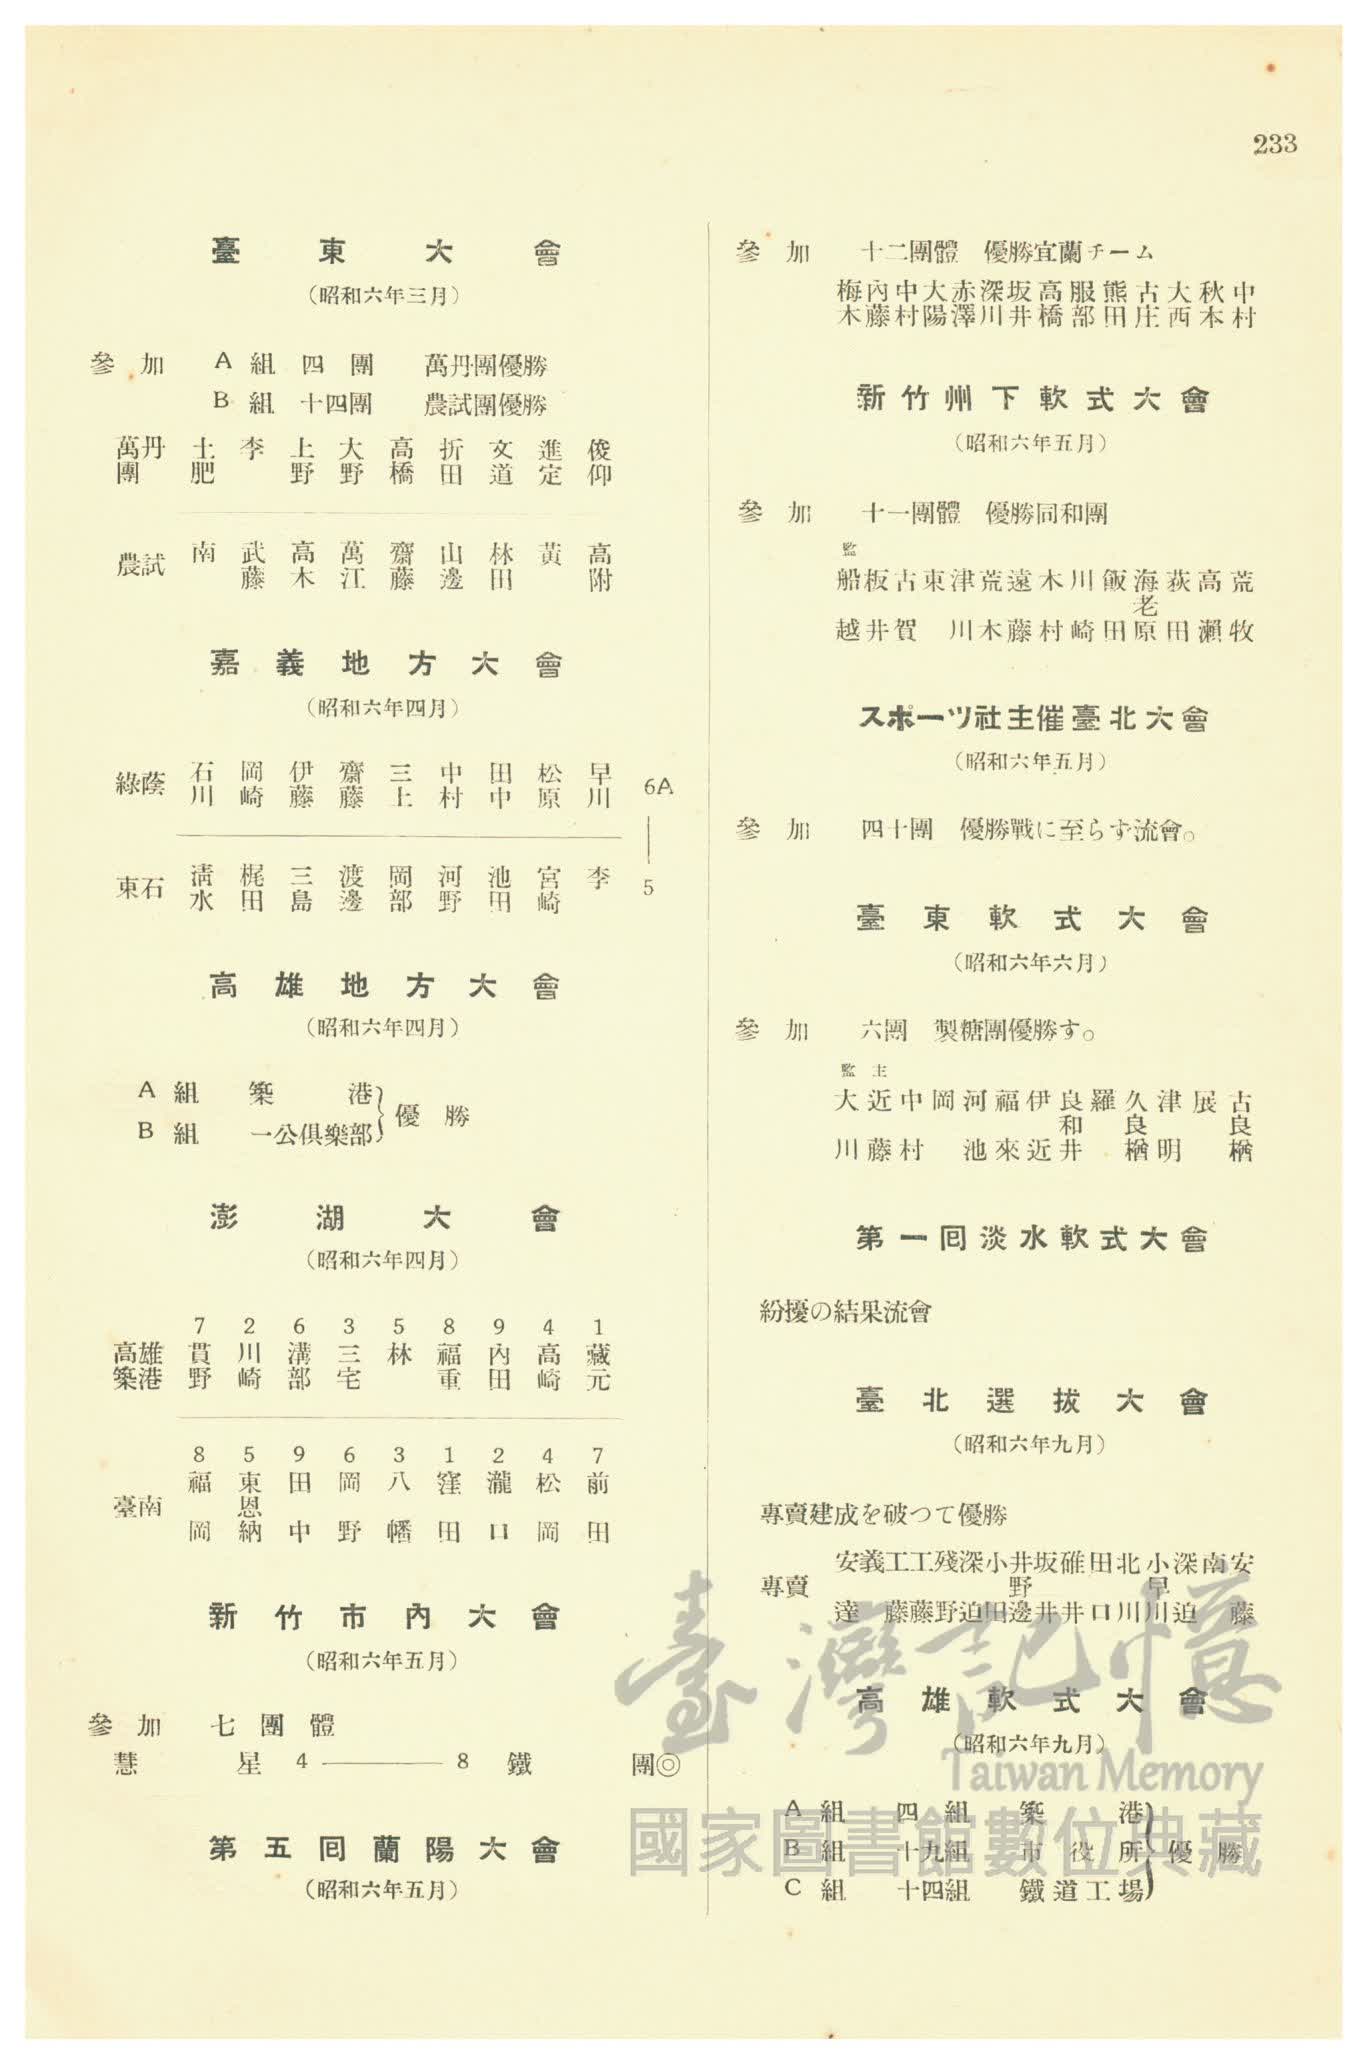 233
臺東大會
（昭和六年三月）
參加 A組 四團 萬丹團優勝
B組 十四團 農試團優勝
萬丹團 土肥 李 上野 大野 高橋 折田 文道 進定 俊仰
農試 南 武藤 高木 萬江 齋藤 山邊 林田 黃 高附
嘉義地方大會
（昭和六年四月）
綠蔭 石川 岡崎 伊藤 齋藤 三上 中村 田中 松原 早川 6A
東石 淸水 梶田 三島 渡邊 岡部 河野 池田 宮崎 李 5
高雄地方大會
（昭和六年四月）
A組 築港
B組 一公俱樂部
優勝
澎湖大會
（昭和六年四月）
7 2 6 3 5 8 9 4 1
高雄築港 貫野 川崎 溝部 三宅 林 福重 內田 高崎 藏元
8 5 9 6 3 1 2 4 7
臺南 福岡 東恩納 田中 岡野 八幡 窪田 瀧口 松岡 前田
新竹市內大會
（昭和六年五月）
參加 七團體
慧星 4 — 8 鐵團◎
第五回蘭陽大會
（昭和六年五月）
參加 十二團體 優勝宜蘭チーム
梅木 內藤 中村 大陽 赤澤 深川 坂井 高橋 服部 熊田 古庄 大西 秋本 中村
新竹州下軟式大會
（昭和六年五月）
參加 十一團體 優勝同和團
監
船越 板井 古賀 東 津川 荒木 遠藤 木村 川崎 飯田 海老原 荻田 高瀨 荒牧
スポーツ社主催臺北大會
（昭和六年五月）
參加 四十團 優勝戰に至らず流會。
臺東軟式大會
（昭和六年六月）
參加 六團 製糖團優勝す。
監 主
大川 近藤 中村 岡 河池 福來 伊近 良和井 羅 久良楢 津明 展 古良楢
第一回淡水軟式大會
紛擾の結果流會
臺北選拔大會
（昭和六年九月）
專賣建成を破つて優勝
專賣 安達 義 工藤 工藤 殘野 深迫 小田 井野邊 坂井 碓井 田口 北川 小早川 深迫 南 安藤
高雄軟式大會
（昭和六年九月）
A組 四組 築港
B組 十九組 市役所
C組 十四組 鐵道工場
優勝
臺灣記憶
Taiwan Memory
國家圖書館數位典藏